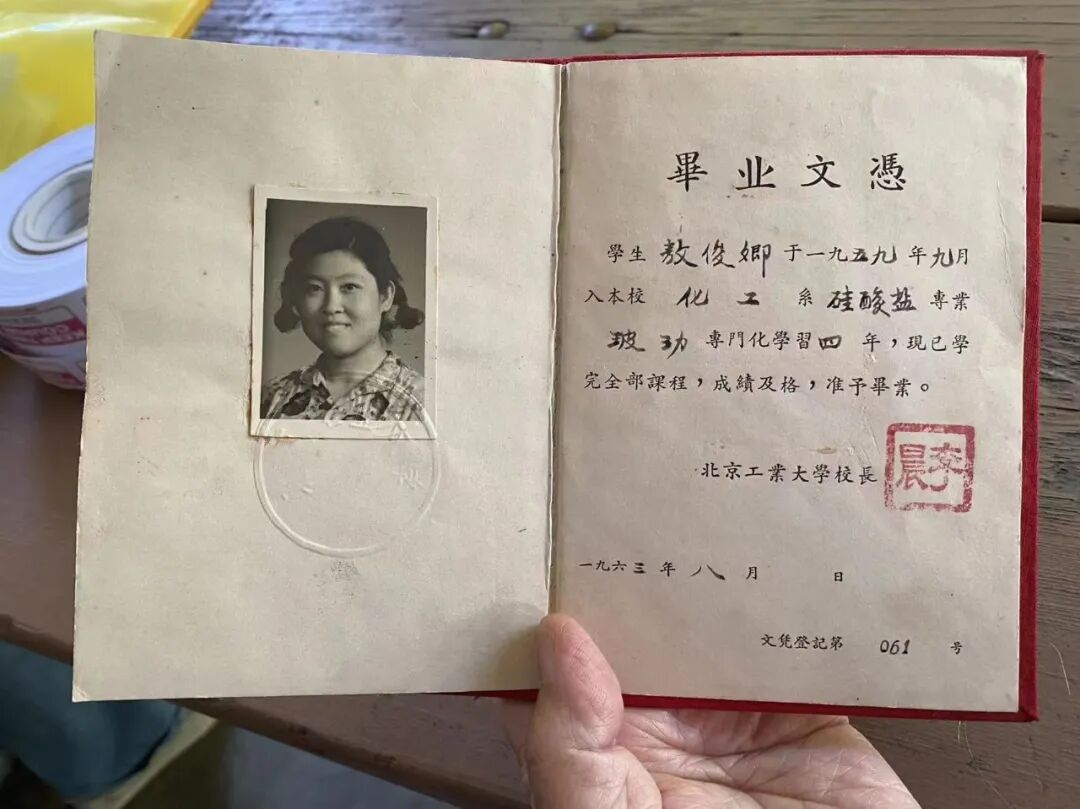 畢业文憑
學生 敖俊卿 于一九五九年九月
入本校 化工 系 硅酸盐 專業
玻玏 專門化學習四年，現已學
完全部課程，成績及格，准予畢業。
北京工業大學校長
李晨
一九六三年八月 日
文凭登記第 061 号